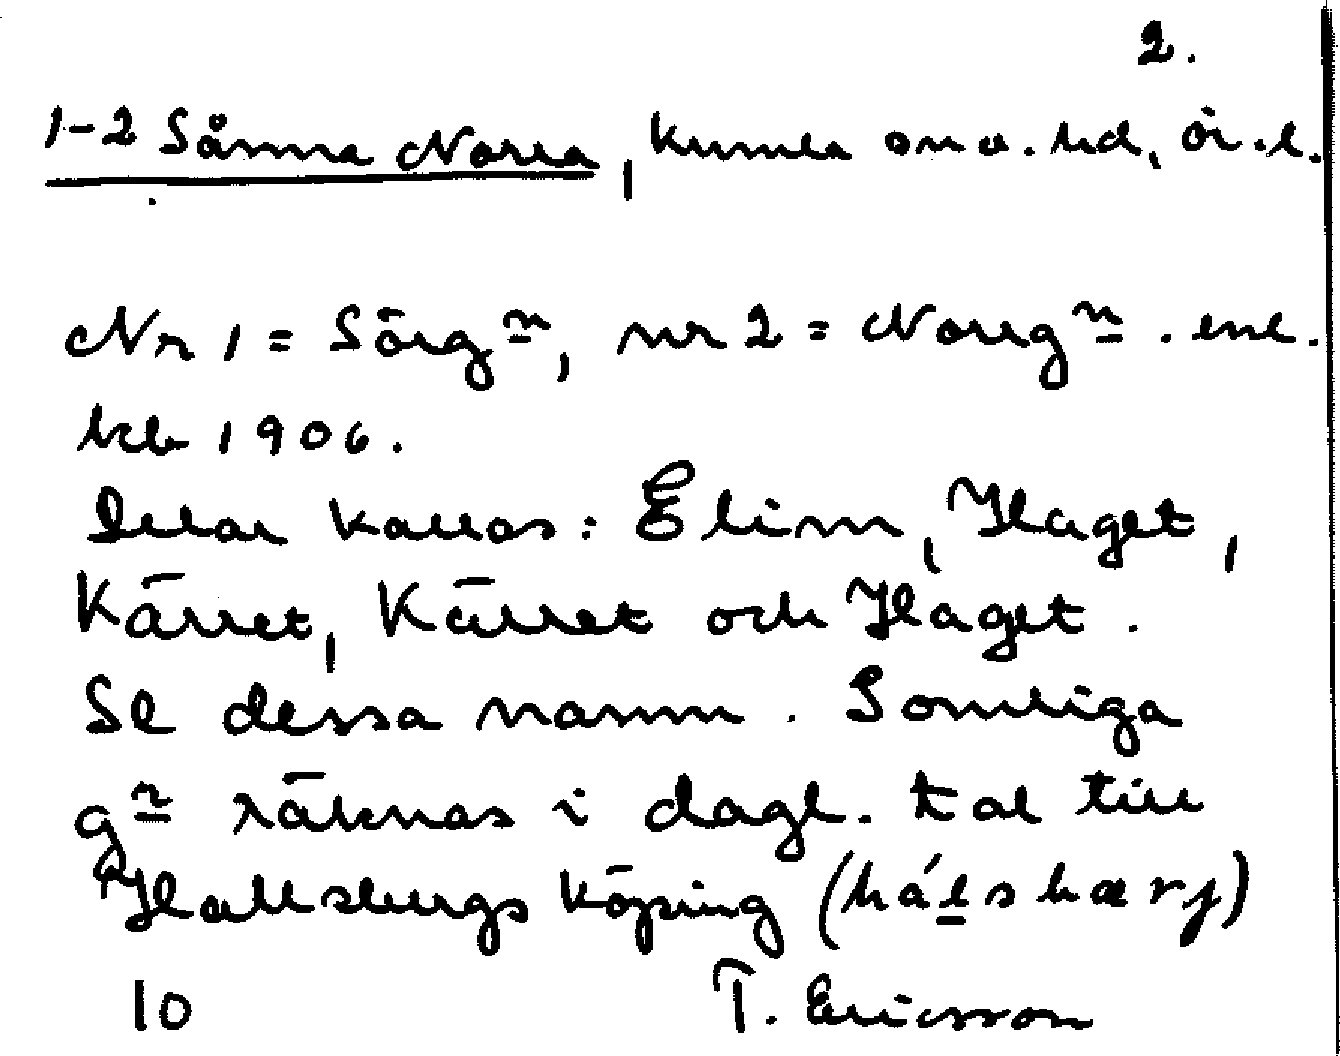 2.
1-2 Sånna Norra, Kumla sn o. hd, Ör. l.
Nr 1 = Sörgn, nr 2 = Norrgn. enl.
kb 1906.
Delar kallas: Elim, Haget,
Kärret, Kärret och Haget.
Se dessa namn. Somliga
gn räknas i dagl. tal till
Hallsbergs köping (hálsbærj)
10 T. Ericsson